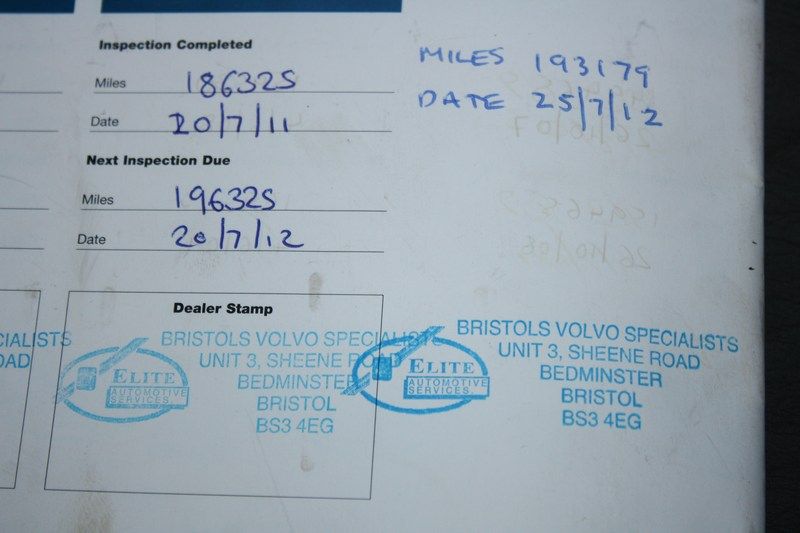 Inspection Completed
Miles 186325
Date 20/7/11
Next Inspection Due
Miles 196325
Date 20/7/12
MILES 193179
DATE 25/7/12
Dealer Stamp
CIALISTS
OAD
ELITE
AUTOMOTIVE
SERVICES.
BRISTOLS VOLVO SPECIALISTS
UNIT 3, SHEENE ROAD
BEDMINSTER
BRISTOL
BS3 4EG
ELITE
AUTOMOTIVE
SERVICES.
BRISTOLS VOLVO SPECIALISTS
UNIT 3, SHEENE ROAD
BEDMINSTER
BRISTOL
BS3 4EG